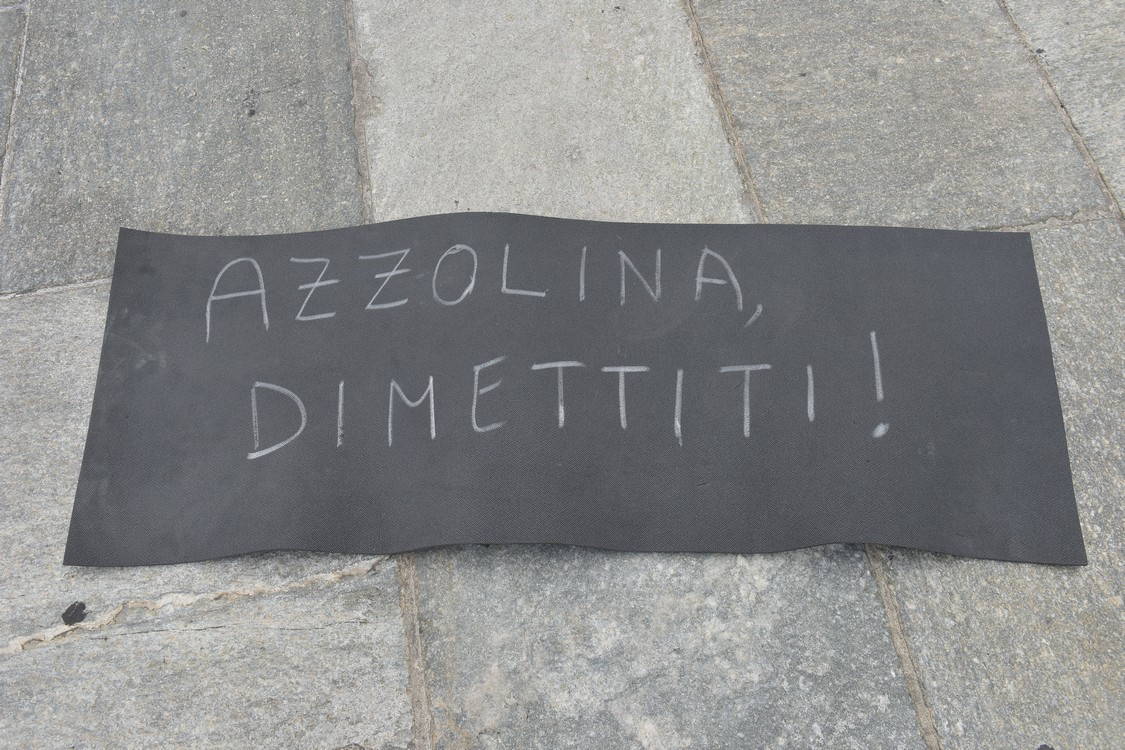 AZZOLINA,
DIMETTITI!